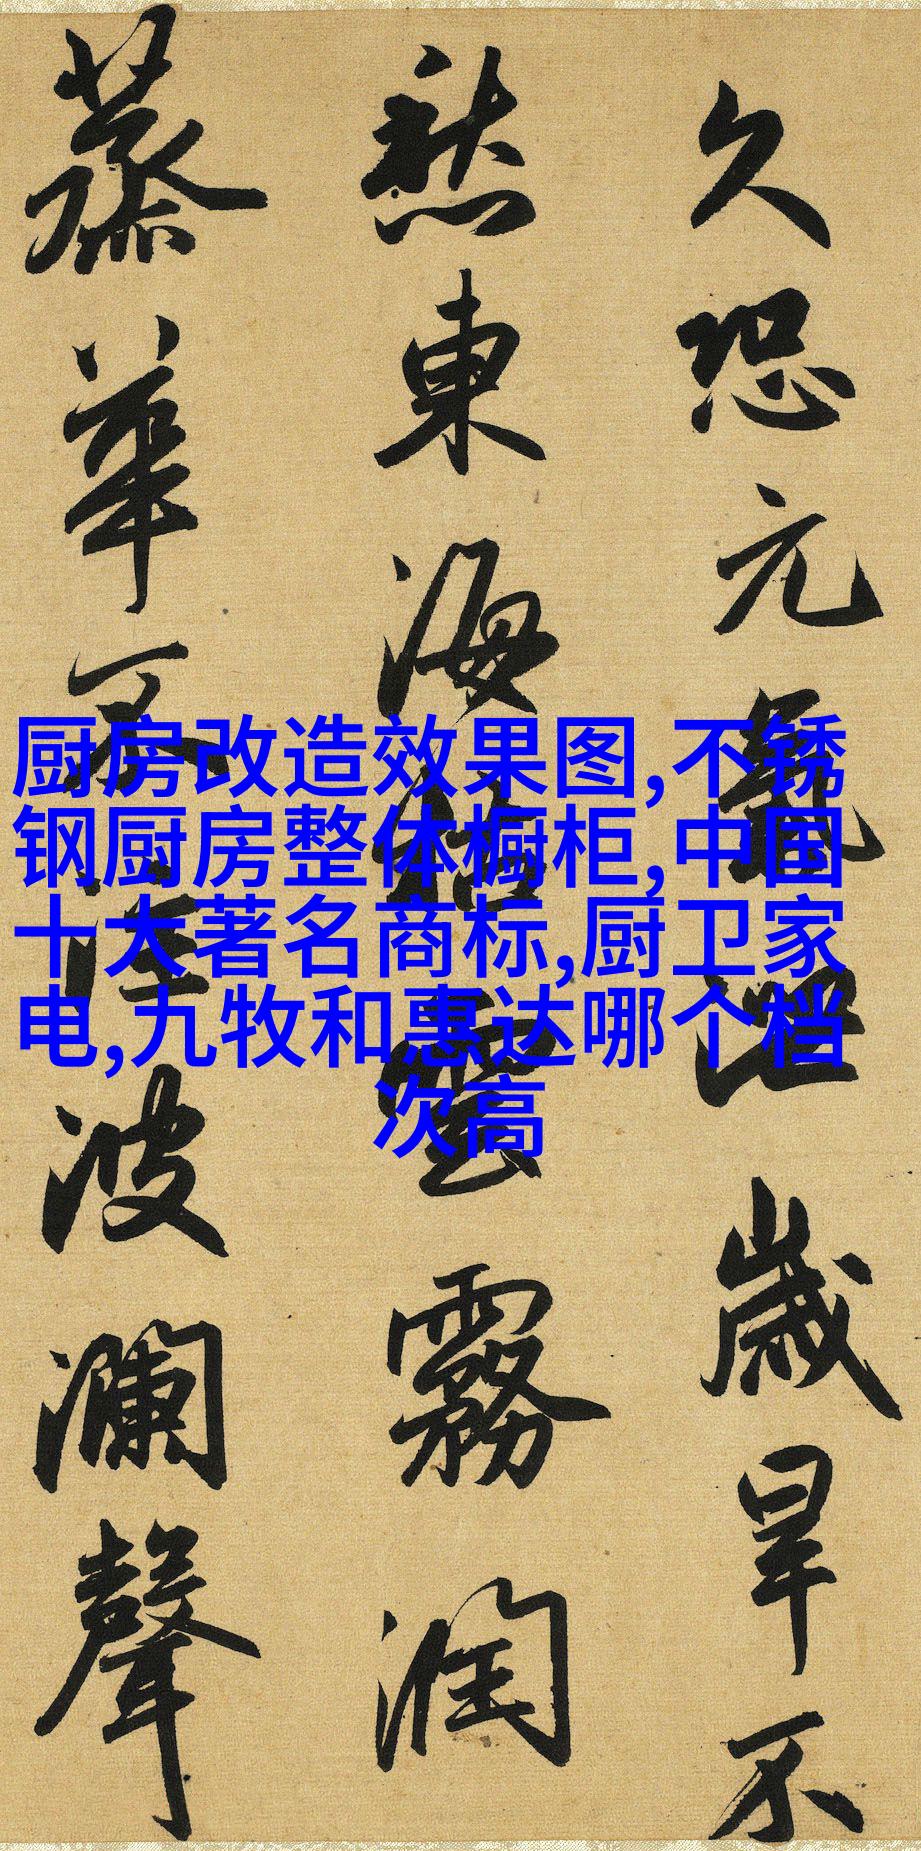 久恐元氣泄歲旱不
愁東海枯雲霧潤
蒸華不注波瀾聲
厨房改造效果图,不锈
钢厨房整体橱柜,中国
十大著名商标,厨卫家
电,九牧和惠达哪个档
次高